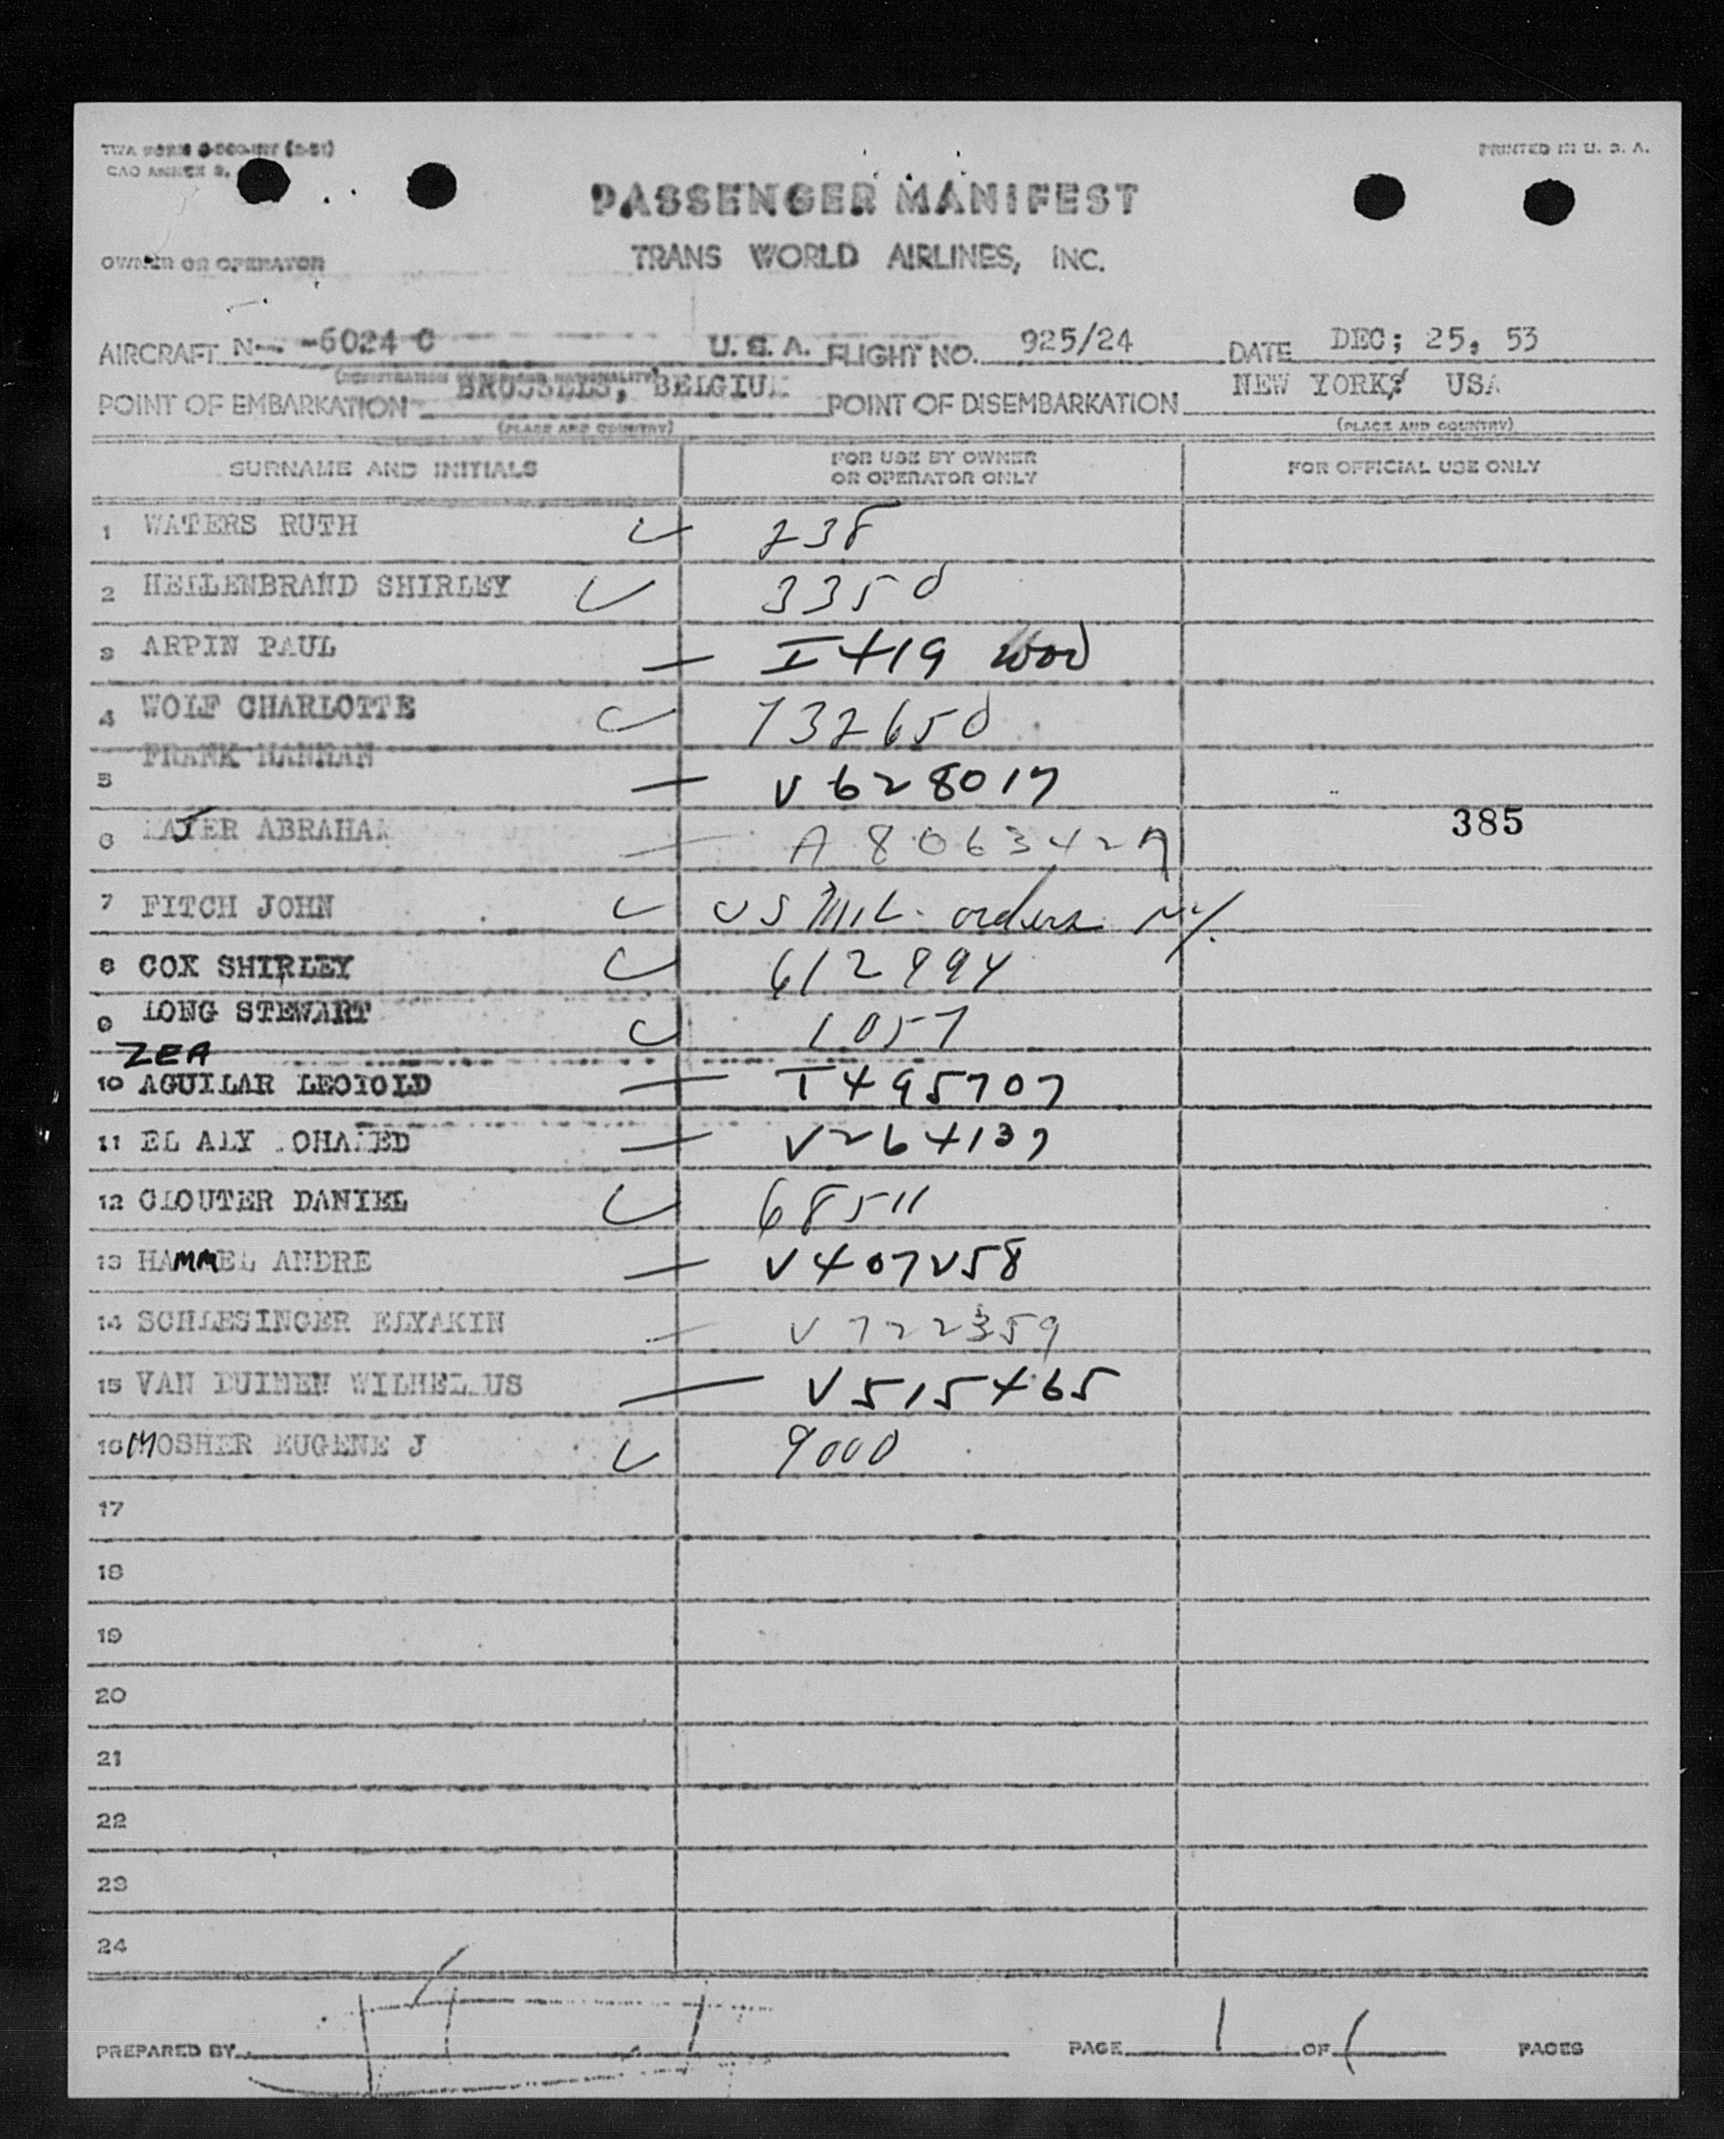 PRINTED IN U. S. A.
PASSENGER MANIFEST
OWNER OR OPERATOR
TRANS WORLD AIRLINES, INC.
AIRCRAFT N -6024 C U. S. A. FLIGHT NO. 925/24 DATE DEC; 25, 53
POINT OF EMBARKATION BRUSSELS, BELGIUM POINT OF DISEMBARKATION NEW YORK, USA
(PLACE AND COUNTRY) (PLACE AND COUNTRY)
SURNAME AND INITIALS FOR USE BY OWNER OR OPERATOR ONLY FOR OFFICIAL USE ONLY
1 WATERS RUTH 238
2 HEILENBRAND SHIRLEY 3350
3 ARPIN PAUL I419
4 WOLF CHARLOTTE 732650
5 FRANK HANNAN V628017
6 ABRAHAM A806342A 385
7 FITCH JOHN US Mil. orders
8 COX SHIRLEY 612994
9 LONG STEWART 1057
ZEA
10 AGUILAR LEOPOLD T495707
11 EL ALY MOHAMED V264137
12 CLOUTER DANIEL 68511
13 HAMMEL ANDRE V407V58
14 SCHLESINGER ELYAKIN V722359
15 VAN DUINEN WILHELMUS V515465
16 MOSHER EUGENE J 9000
17
18
19
20
21
22
23
24
PREPARED BY PAGE 1 OF 1 PAGES